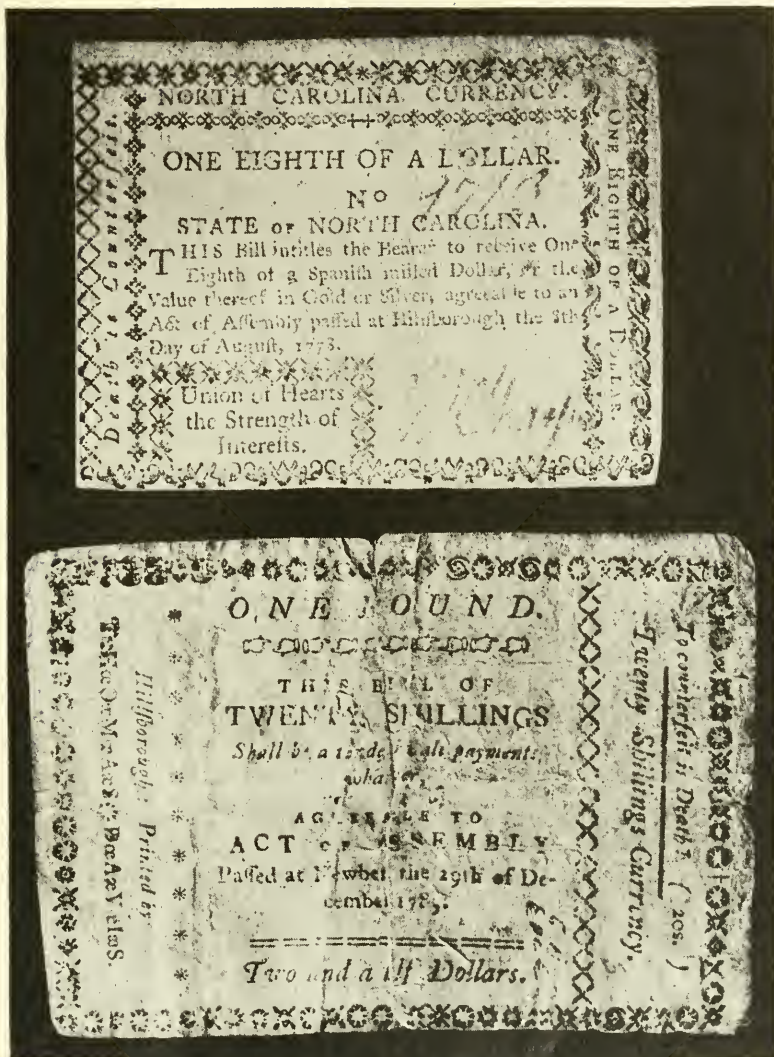 NORTH CAROLINA CURRENCY.
ONE EIGHTH OF A DOLLAR.
No
STATE OF NORTH CAROLINA.
THIS Bill intitles the Bearer to receive One
Eighth of a Spaniſh milled Dollar, or the
Value thereof in Gold or Silver, agreeable to an
Act of Aſſembly paſſed at Hillſborough the 8th
Day of Auguſt, 1778.
Union of Hearts
the Strength of
Intereſts.
Death to Counterfeit.
ONE EIGHTH OF A DOLLAR.
ONE POUND.
THIS BILL OF
TWENTY SHILLINGS
Shall be a tender in all payments
whatever,
AGREEABLE TO
ACT OF ASSEMBLY
Paſſed at Newbern the 29th of De-
cember 1785.
Two and a half Dollars.
Hillſborough: Printed by
TœHœOœMœAœSœ DœAœVœIœS.
To counterfeit is Death. (20s.)
Twenty Shillings Currency.